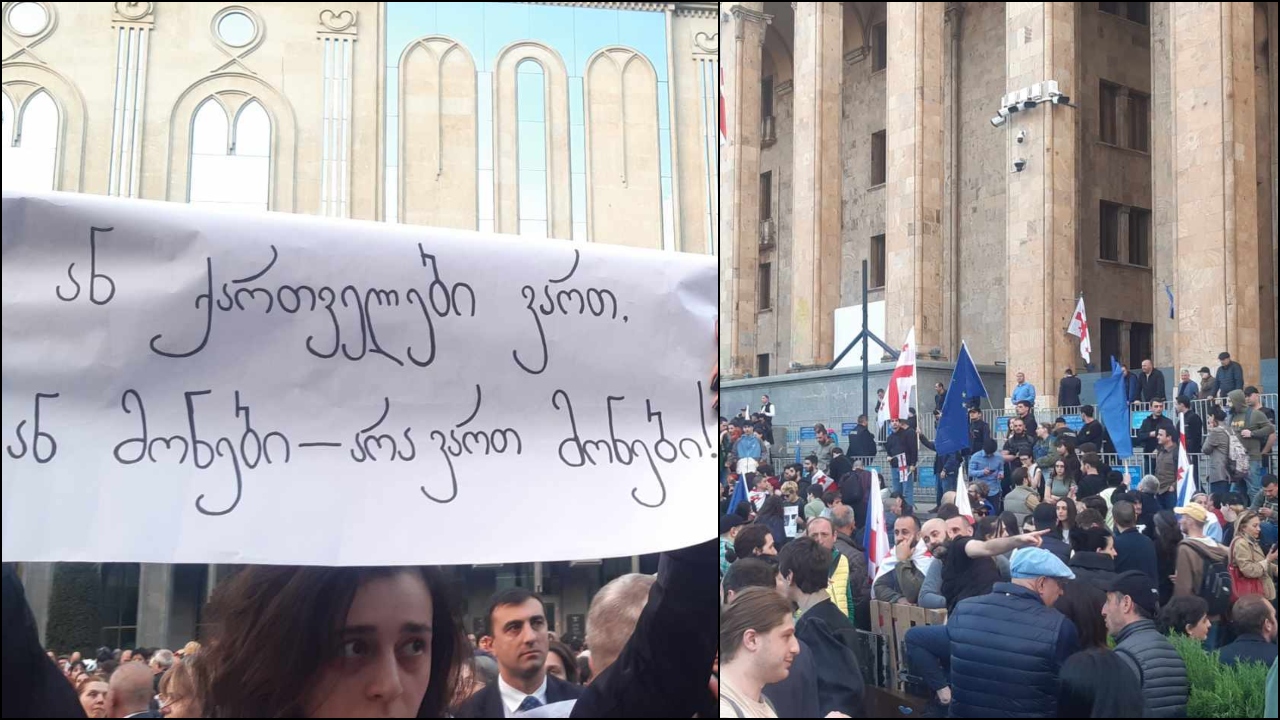 ან ქართველები ვართ,
ან მონები – არა ვართ მონები!